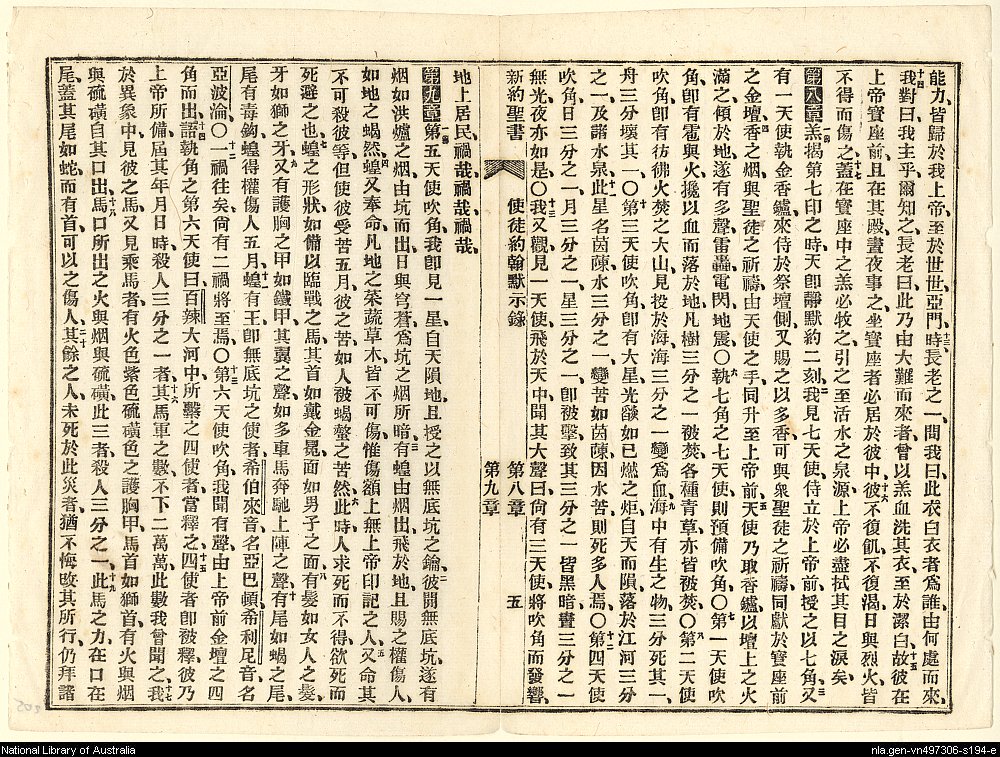 能力、皆歸於我上帝、至於世世、亞門、十三時長老之一、問我曰、此衣白衣者爲誰、由何處而來、
十四我對曰、我主乎、爾知之、長老曰、此乃由大難而來者、曾以羔血洗其衣、至於潔白、十五故彼在
上帝寶座前、且在其殿、晝夜事之、坐寶座者必居於彼中、十六彼不復飢、不復渴、日與烈火皆
不得而傷之、十七蓋在寶座中之羔必牧之、引之至活水之泉源、上帝必盡拭其目之淚矣、
第八章 一羔揭第七印之時、天卽靜默約二刻、二我見七天使、侍立於上帝前、授之以七角、三又
有一天使執金香鑪、來侍於祭壇側、又賜之以多香、可與衆聖徒之祈禱、同獻於寶座前
之金壇、四香之烟、與聖徒之祈禱、由天使之手、同升至上帝前、五天使乃取香鑪、以壇上之火
滿之、傾於地、遂有多聲雷轟電閃地震、〇六執七角之七天使、則預備吹角、〇七第一天使吹
角、卽有雹與火、攙以血而落於地、凡樹三分之一被焚、各種青草、亦皆被焚、〇八第二天使
吹角、卽有彷彿火焚之大山、見投於海、海三分之一變爲血、九海中有生之物、三分死其一、
舟三分壞其一、〇十第三天使吹角、卽有大星、光燄如已燃之炬、自天而隕、落於江河三分
之一、及諸水泉、十一此星名茵蔯、水三分之一、變苦如茵蔯、因水苦則死多人焉、〇十二第四天使
吹角、日三分之一、月三分之一、星三分之一、卽被擊、致其三分之一皆黑暗、晝三分之一
無光、夜亦如是、〇十三我又觀見一天使、飛於天中、聞其大聲曰、尙有三天使將吹角而發響、
新約聖書 使徒約翰默示錄 第八章 第九章 五
地上居民、禍哉禍哉禍哉、
第九章 一第五天使吹角、我卽見一星、自天隕地、且授之以無底坑之鑰、二彼開無底坑、遂有
烟如洪爐之烟、由坑而出、日與穹蒼、爲坑之烟所暗、三有蝗由烟出、飛於地、且賜之權傷人、
如地之蝎然、四蝗又奉命、凡地之菜蔬草木、皆不可傷、惟傷額上無上帝印記之人、五又命其
不可殺彼等、但使彼受苦五月、彼之苦如人被蝎螫之苦然、六此時人求死而不得、欲死而
死避之也、七蝗之形狀、如備以臨戰之馬、其首如戴金冕、而如男子之面、八有髮如女人之髮、
牙如獅之牙、九又有護胸之甲如鐵甲、其翼之聲、如多車馬奔馳上陣之聲、十有尾如蝎之尾、
尾有毒鈎、蝗得權傷人五月、十一蝗有王、卽無底坑之使者、希伯來音、名亞巴頓、希利尼音、名
亞波淪、〇十二一禍往矣、尙有二禍將至焉、〇十三第六天使吹角、我聞有聲、由上帝前金壇之四
角而出、十四語執角之第六天使曰、百辣大河中、所繫之四使者、當釋之、十五四使者卽被釋、彼乃
上帝所備、屆其年月日時、殺人三分之一者、十六其馬軍之數、不下二萬萬、此數我曾聞之、十七我
於異象中、見彼之馬、又見乘馬者、有火色紫色硫磺色之護胸甲、馬首如獅首、有火與烟
與硫磺、自其口出、十八馬口所出之火與烟與硫磺、此三者殺人三分之一、十九此馬之力、在口在
尾、蓋其尾如蛇、而有首、可以之傷人、二十其餘之人、未死於此災者、猶不悔改其所行、仍拜諸
National Library of Australia
nla.gen-vn497306-s194-e